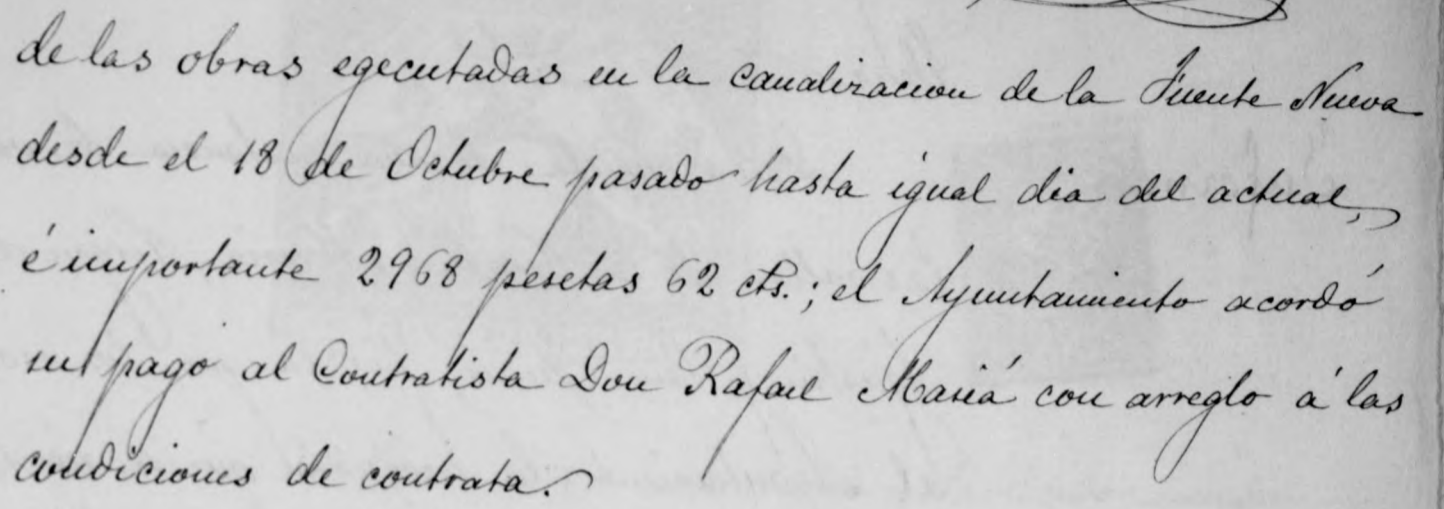 de las obras egecutadas en la canalizacion de la Fuente Nueva
desde el 18 de Octubre pasado hasta igual dia del actual,
é importante 2968 pesetas 62 cts.; el Ayuntamiento acordó
su pago al Contratista Don Rafael Masiá con arreglo á las
condiciones de contrata.